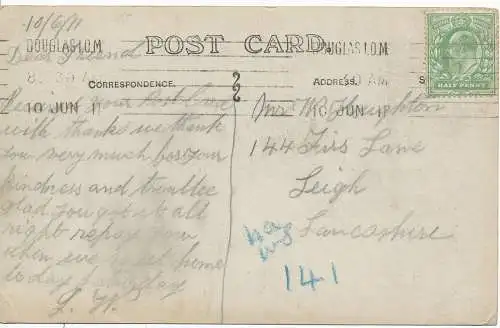 10/6/11
DOUGLAS I.O.M
8. 30 A
10 JUN 11
POST CARD.
CORRESPONDENCE.
ADDRESS.
Dear Friend
your
with thanks we thank
you very much for your
kindness and troullee
glad you got it all
right repay you
when we get home
to day
L. H.
DOUGLAS I.O.M
0 AM
10 JUN 11
HALF PENNY
Mrs W Houghton
144 Firs Lane
Leigh
Lancashire
141